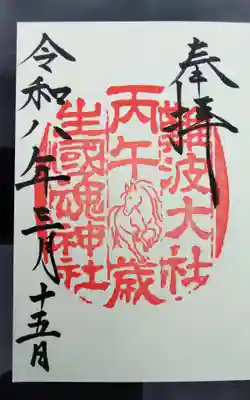 奉拝
難波大社
丙午歳
生國魂神社
令和八年三月十五日